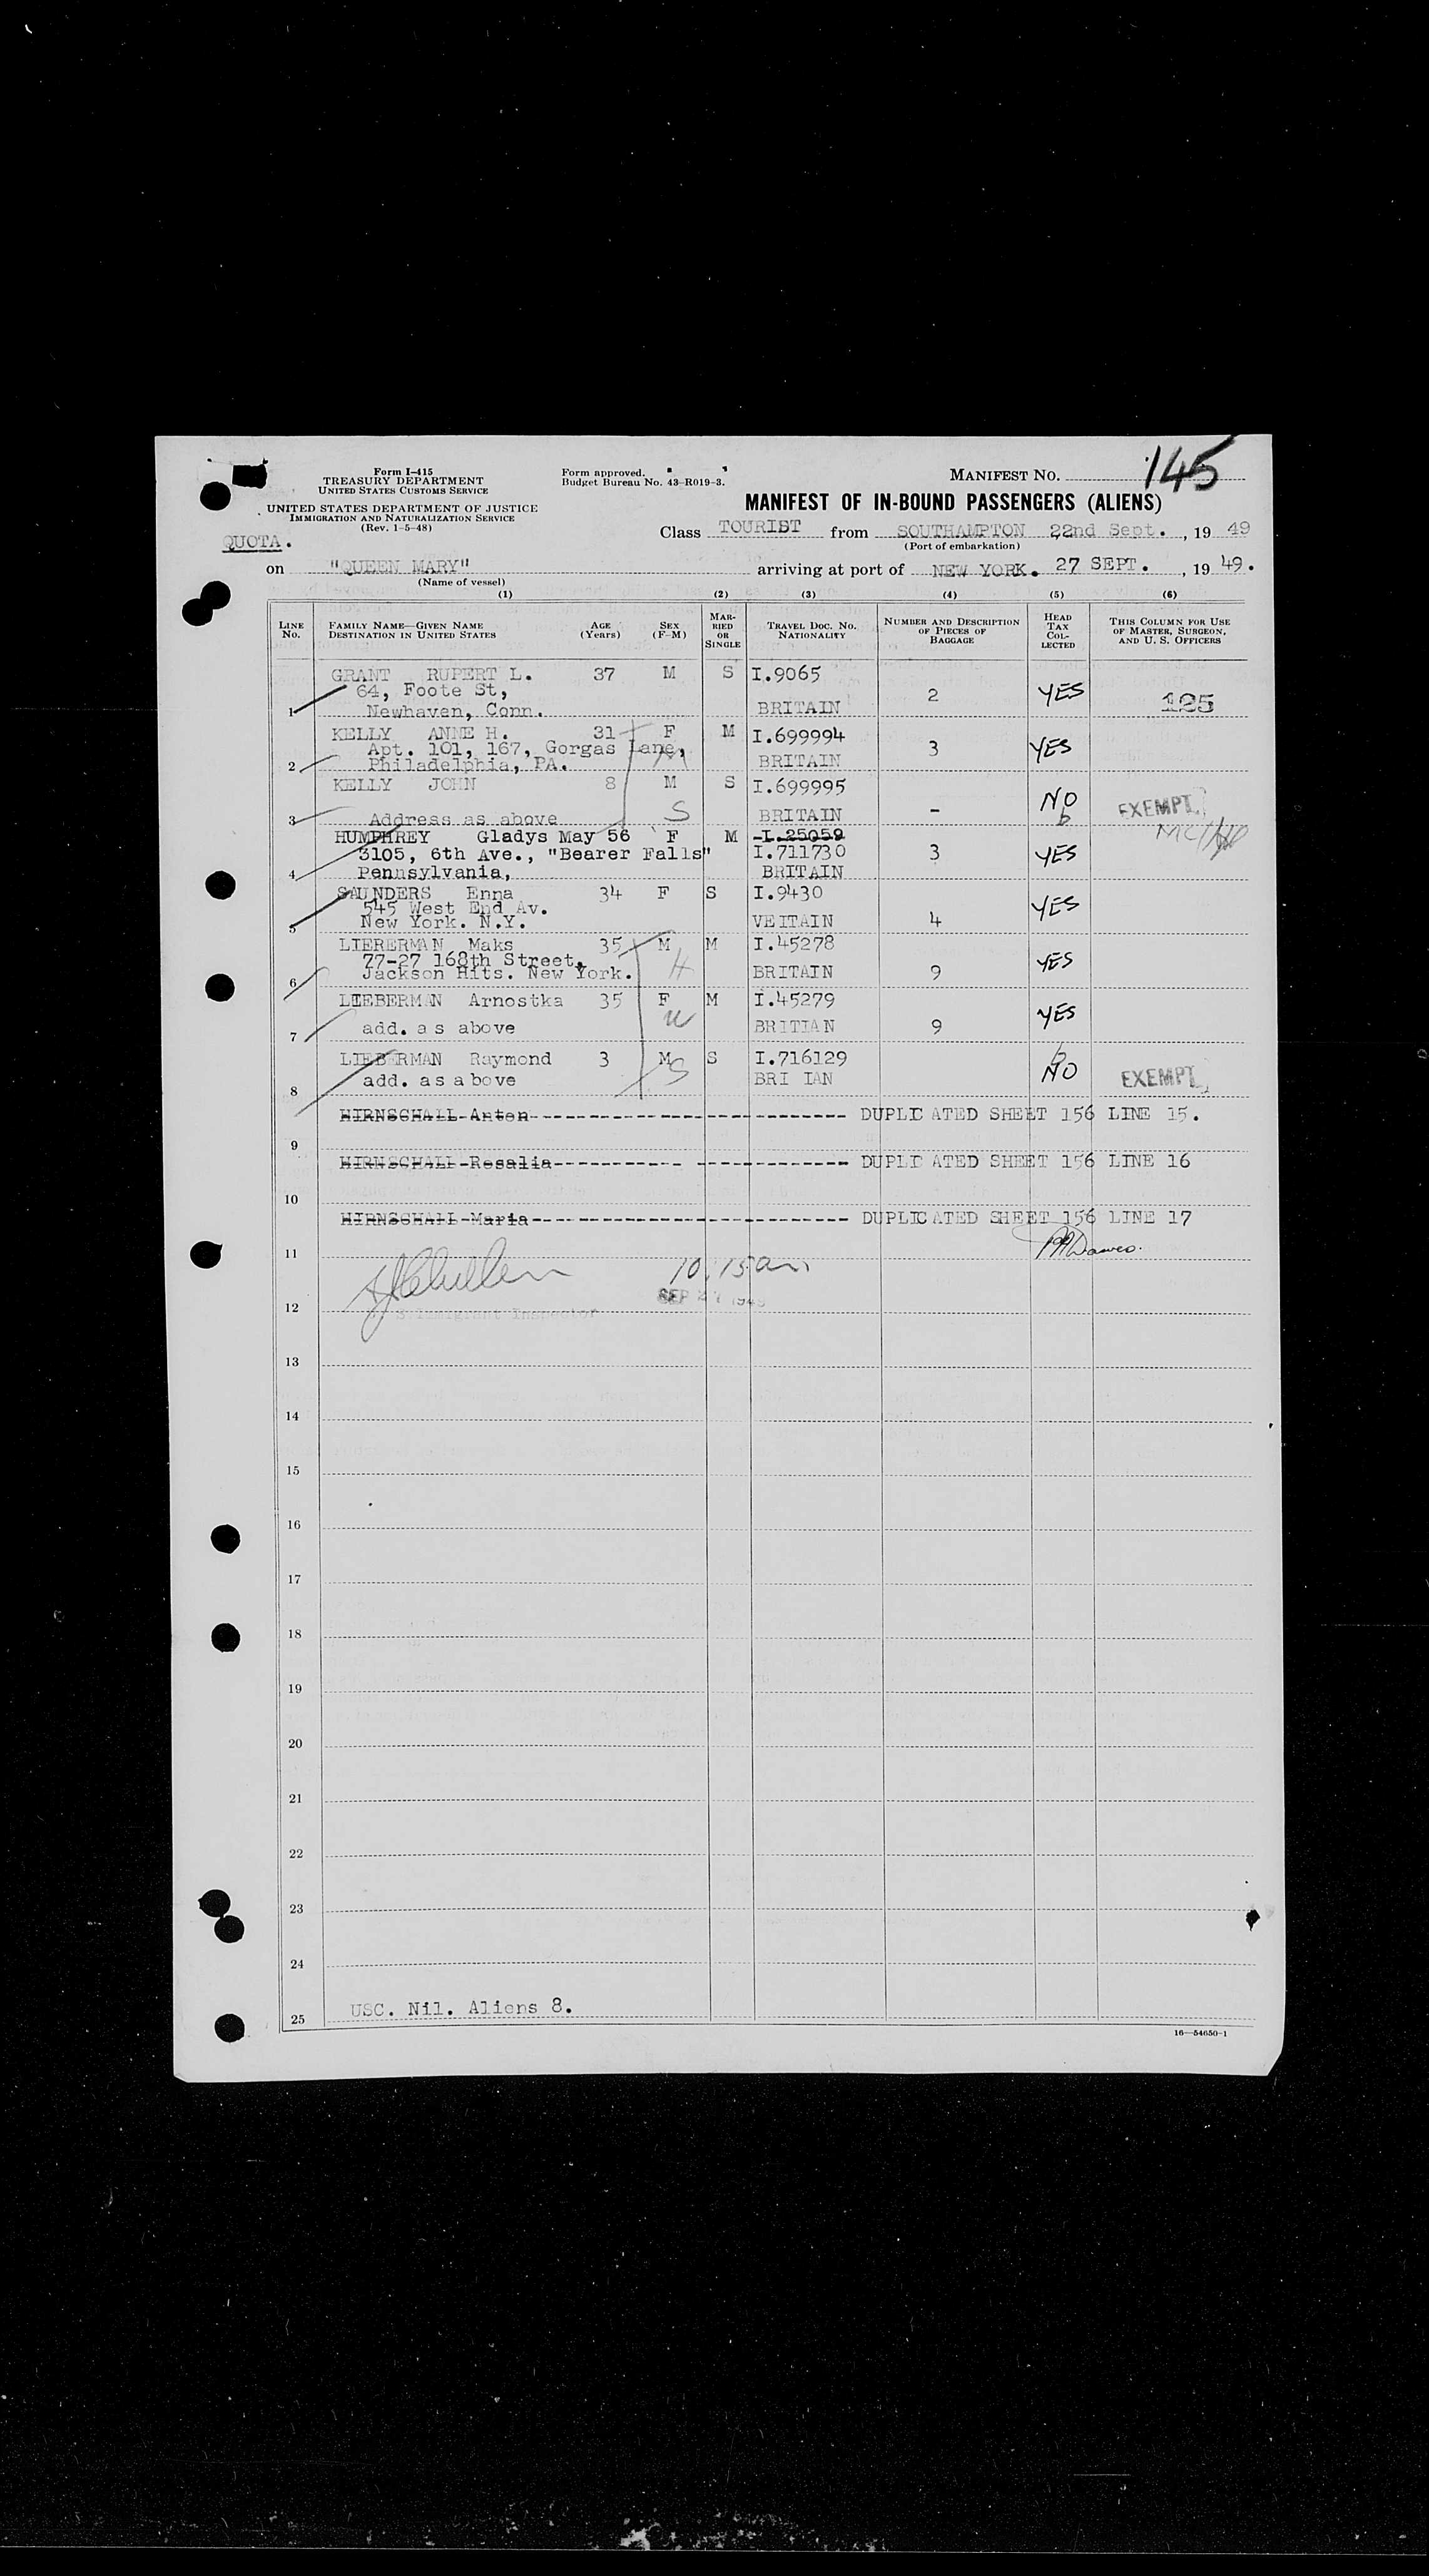 Form I-415
TREASURY DEPARTMENT
UNITED STATES CUSTOMS SERVICE
UNITED STATES DEPARTMENT OF JUSTICE
IMMIGRATION AND NATURALIZATION SERVICE
(Rev. 1-5-48)
Form approved.
Budget Bureau No. 43-R019-3.
MANIFEST NO. 145
MANIFEST OF IN-BOUND PASSENGERS (ALIENS)
QUOTA.
Class TOURIST from SOUTHAMPTON 22nd Sept., 19 49
(Port of embarkation)
on "QUEEN MARY" arriving at port of NEW YORK. 27 SEPT., 19 49.
(Name of vessel)
(1) (2) (3) (4) (5) (6)
LINE NO.
FAMILY NAME—GIVEN NAME
DESTINATION IN UNITED STATES
AGE (Years)
SEX (F-M)
MARRIED OR SINGLE
TRAVEL DOC. NO.
NATIONALITY
NUMBER AND DESCRIPTION OF PIECES OF BAGGAGE
HEAD TAX COLLECTED
THIS COLUMN FOR USE OF MASTER, SURGEON, AND U. S. OFFICERS
GRANT RUPERT L. 37 M S I.9065
64, Foote St, 2 YES 125
1 Newhaven, Conn. BRITAIN
KELLY ANNE H. 31 F M I.699994
Apt. 101, 167, Gorgas Lane, 3 YES
2 Philadelphia, PA. BRITAIN
KELLY JOHN 8 M S I.699995
S - NO EXEMPT
3 Address as above BRITAIN
HUMPHREY Gladys May 56 F M I.25059
3105, 6th Ave., "Bearer Falls" I.711730 3 YES
4 Pennsylvania, BRITAIN
SAUNDERS Enna 34 F S I.9430
545 West End Av. YES
5 New York. N.Y. VEITAIN 4
LIERERMAN Maks 35 M M I.45278
77-27 168th Street, H YES
6 Jackson Hits. New York. BRITAIN 9
LIEBERMAN Arnostka 35 F M I.45279
W YES
7 add. as above BRITIAN 9
LIEBERMAN Raymond 3 M S I.716129
S NO EXEMPT
8 add. as above BRI IAN
HIRNSCHALL Anton DUPLICATED SHEET 156 LINE 15.
9
HIRNSCHALL Rosalia DUPLICATED SHEET 156 LINE 16
10
HIRNSCHALL Maria DUPLICATED SHEET 156 LINE 17
11
10:15am
SEP 27 1949
12 Immigrant Inspector
13
14
15
16
17
18
19
20
21
22
23
24
USC. Nil. Aliens 8.
25
16—54650-1